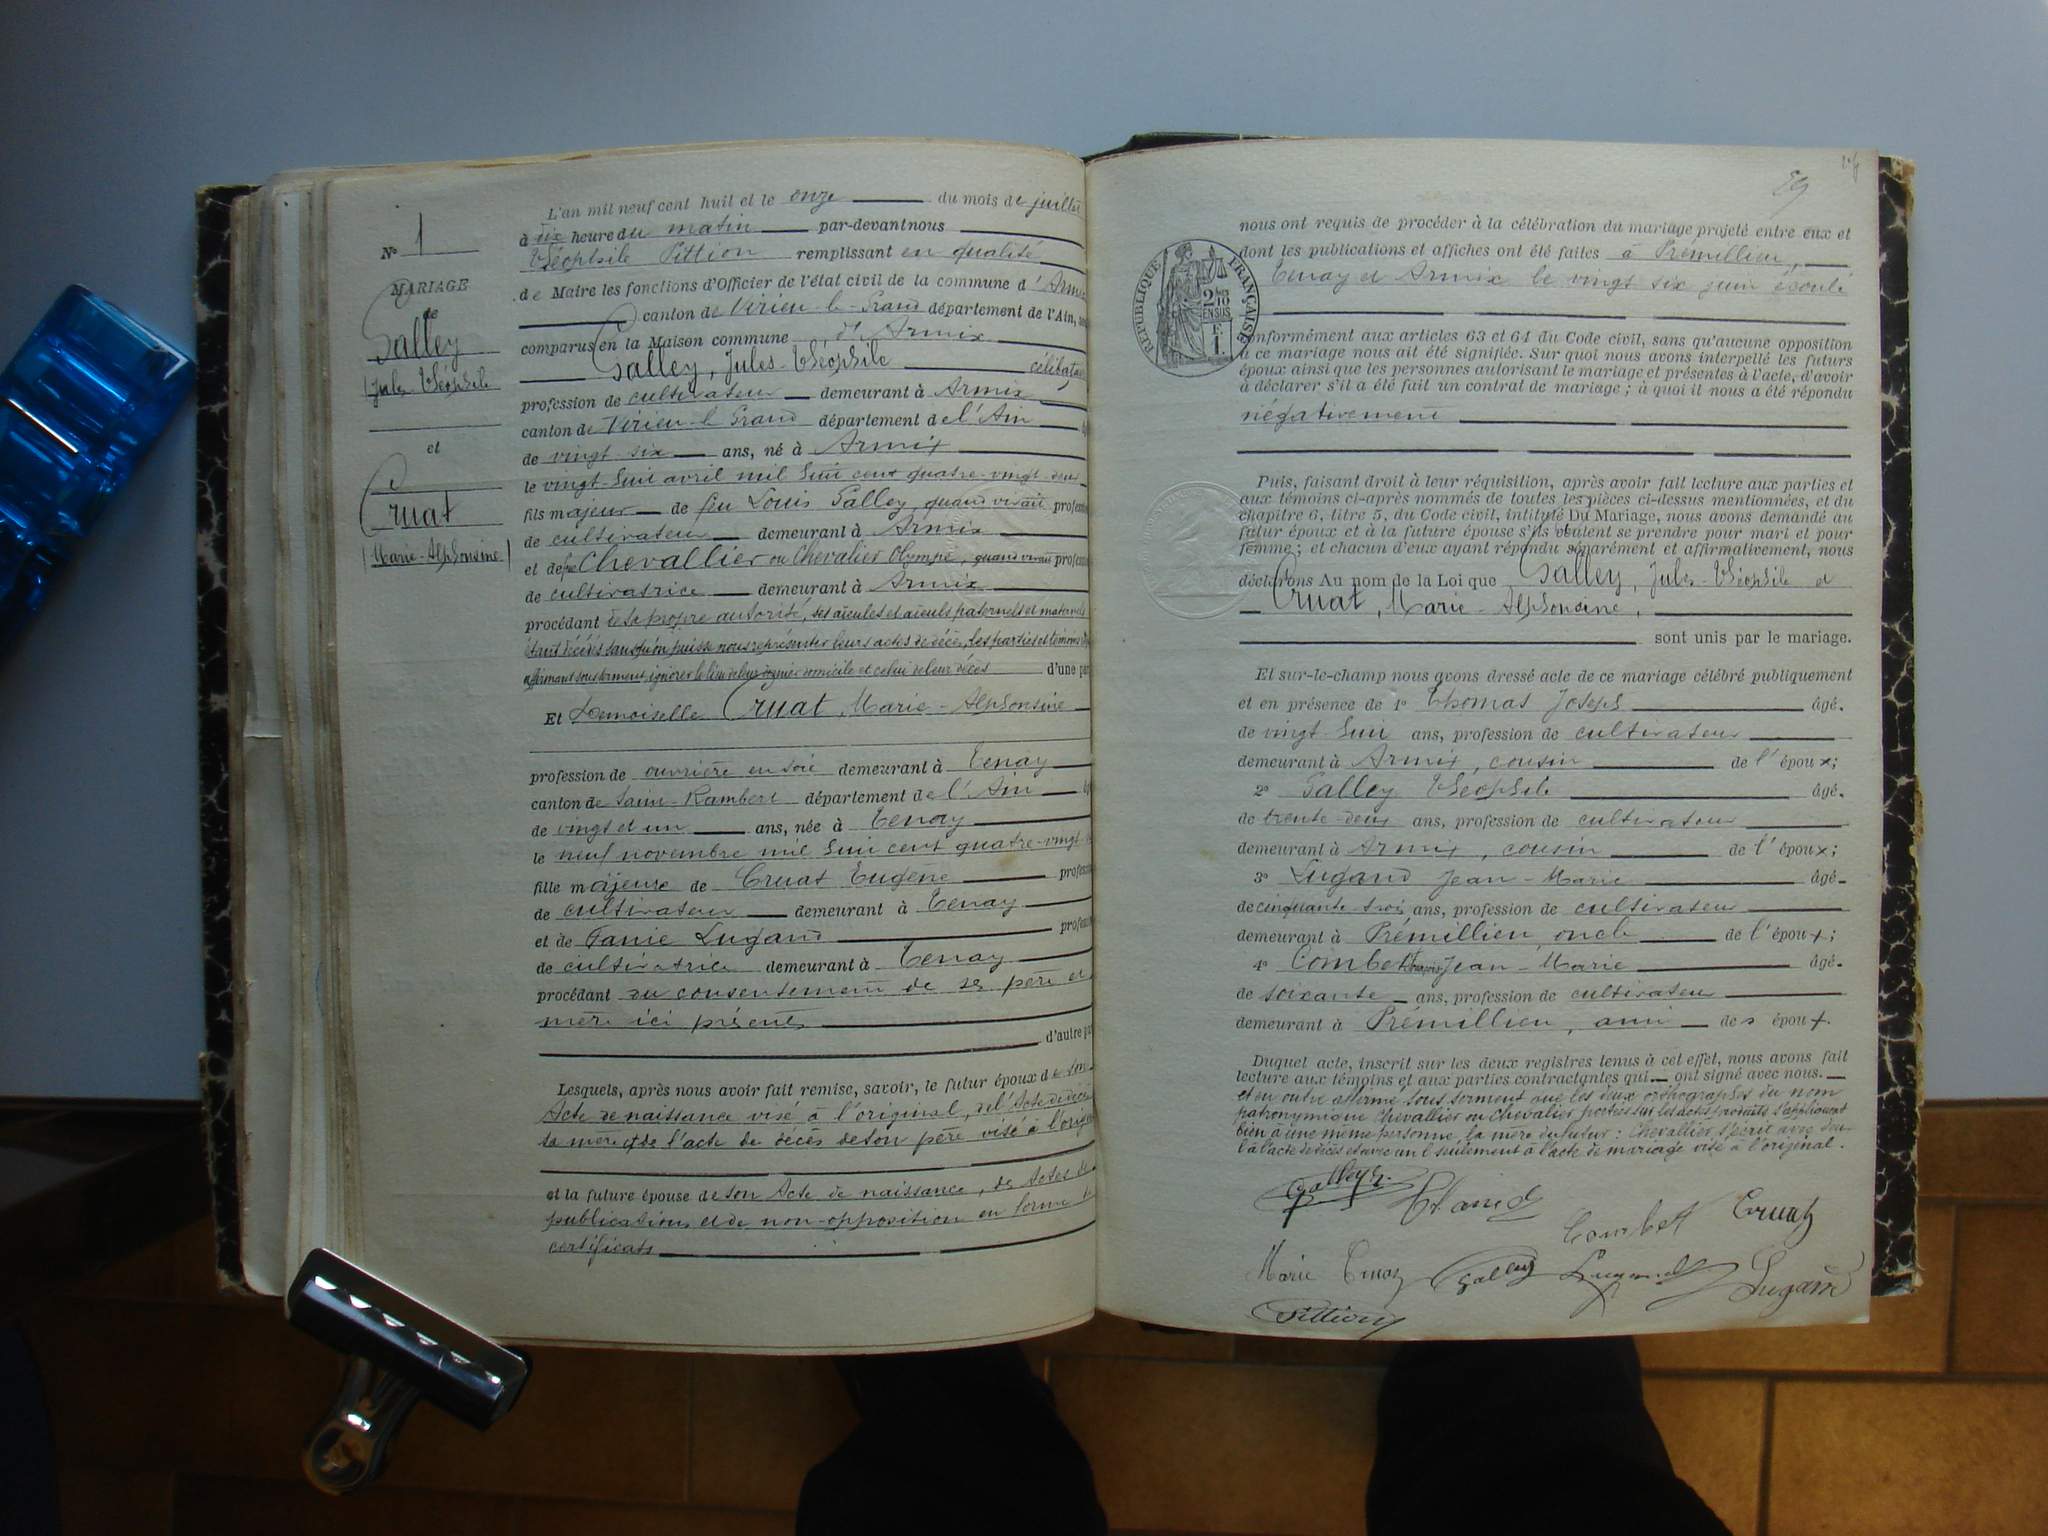 N° 1
MARIAGE
de
Galley
Jules Théophile
et
Cruat
Marie-Alphonsine
L'an mil neuf cent huit et le onze du mois de juillet
à dix heure du matin par-devant nous
Théophile Pittion remplissant en qualité
de Maire les fonctions d'Officier de l'état civil de la commune d'Armix
canton de Virieu-le-Grand département de l'Ain,
comparus en la Maison commune d'Armix
Galley, Jules-Théophile célibataire
profession de cultivateur demeurant à Armix
canton de Virieu-le-Grand département de l'Ain
de vingt-six ans, né à Armix
le vingt-huit avril mil huit cent quatre-vingt-deux
fils majeur de feu Louis Galley, quand vivait profession
de cultivateur demeurant à Armix
et de feue Chevallier ou Chevalier Olympe, quand vivait profession
de cultivatrice demeurant à Armix
procédant de sa propre autorité, ses aïeules et aïeuls paternels et maternels
étant décédés sans qu'on puisse nous représenter leurs actes de décès, les parties et témoins
affirmant sous serment, ignorer le lieu de leur dernier domicile et celui de leur décès d'une part
Et Demoiselle Cruat, Marie-Alphonsine
profession de ouvrière en soie demeurant à Tenay
canton de Saint-Rambert département de l'Ain
de vingt et un ans, née à Tenay
le neuf novembre mil huit cent quatre-vingt
fille majeure de Cruat Eugène profession
de cultivateur demeurant à Tenay
et de Fanie Lugand profession
de cultivatrice demeurant à Tenay
procédant du consentement de ses père et
mère ici présents
d'autre part
Lesquels, après nous avoir fait remise, savoir, le futur époux de son
Acte de naissance visé à l'original, de l'Acte de décès
sa mère et de l'acte de décès de son père visé à l'original
et la future épouse de son Acte de naissance, des Actes de
publications et de non-opposition en forme de
certificats
59
nous ont requis de procéder à la célébration du mariage projeté entre eux et
dont les publications et affiches ont été faites à Prémillieu,
Tenay et Armix le vingt six juin écoulé
RÉPUBLIQUE FRANÇAISE
2/10 EN SUS
1 F.
conformément aux articles 63 et 64 du Code civil, sans qu'aucune opposition
à ce mariage nous ait été signifiée. Sur quoi nous avons interpellé les futurs
époux ainsi que les personnes autorisant le mariage et présentes à l'acte, d'avoir
à déclarer s'il a été fait un contrat de mariage ; à quoi il nous a été répondu
négativement
Puis, faisant droit à leur réquisition, après avoir fait lecture aux parties et
aux témoins ci-après nommés de toutes les pièces ci-dessus mentionnées, et du
chapitre 6, titre 5, du Code civil, intitulé Du Mariage, nous avons demandé au
futur époux et à la future épouse s'ils veulent se prendre pour mari et pour
femme ; et chacun d'eux ayant répondu séparément et affirmativement, nous
déclarons Au nom de la Loi que Galley, Jules-Théophile et
Cruat, Marie-Alphonsine,
sont unis par le mariage.
Et sur-le-champ nous avons dressé acte de ce mariage célébré publiquement
et en présence de 1° Thomas Joseph âgé
de vingt huit ans, profession de cultivateur
demeurant à Armix, cousin de l'époux;
2° Galley Théophile âgé
de trente-deux ans, profession de cultivateur
demeurant à Armix, cousin de l'époux;
3° Lugand Jean-Marie âgé
de cinquante-trois ans, profession de cultivateur
demeurant à Prémillieu oncle de l'époux;
4° Combet Jean-Marie âgé
de soixante ans, profession de cultivateur
demeurant à Prémillieu, ami des époux.
Duquel acte, inscrit sur les deux registres tenus à cet effet, nous avons fait
lecture aux témoins et aux parties contractantes qui ont signé avec nous.
et en outre affirmé sous serment que les deux orthographes du nom
patronymique Chevallier ou Chevalier portées sur les actes produits s'appliquent
bien à une même personne, la mère du futur : Chevallier s'écrit avec deux
l à l'acte de décès et avec un l seulement à l'acte de mariage visé à l'original.
Galley J.
Combet Cruat
Marie Cruat Galley Lugand Lugand
Pittion